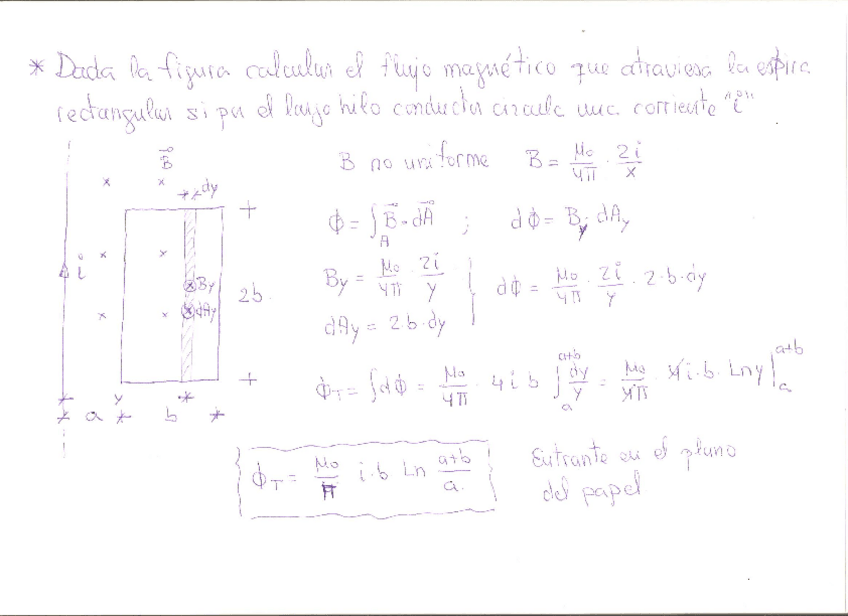 * Dada la figura calcular el flujo magnético que atraviesa la espira
rectangular si por el largo hilo conductor circula una corriente "i"
B⃗
B no uniforme B = μ₀/4π · 2i/x
dy
ϕ = ∫_A B⃗ · dA⃗ ; dϕ = B_y · dA_y
i
B_y
dA_y
2b
B_y = μ₀/4π · 2i/y
dA_y = 2·b·dy
dϕ = μ₀/4π · 2i/y · 2·b·dy
ϕ_T = ∫dϕ = μ₀/4π · 4 i b ∫_a^{a+b} dy/y = μ₀/4π · 4 i·b· Ln y |_a^{a+b}
y
a b
ϕ_T = μ₀/π i·b Ln a+b/a
Entrante en el plano
del papel